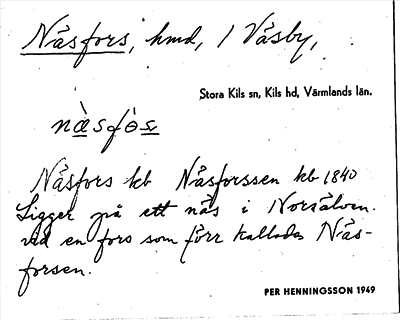 Näsfors, hmd, 1 Väsby,
Stora Kils sn, Kils hd, Värmlands län.
nàsfòs
Näsfors kb Näsforssen kb 1840
Ligger på ett näs i Norsälven
vid en fors som förr kallades Näs-
forsen.
PER HENNINGSSON 1949